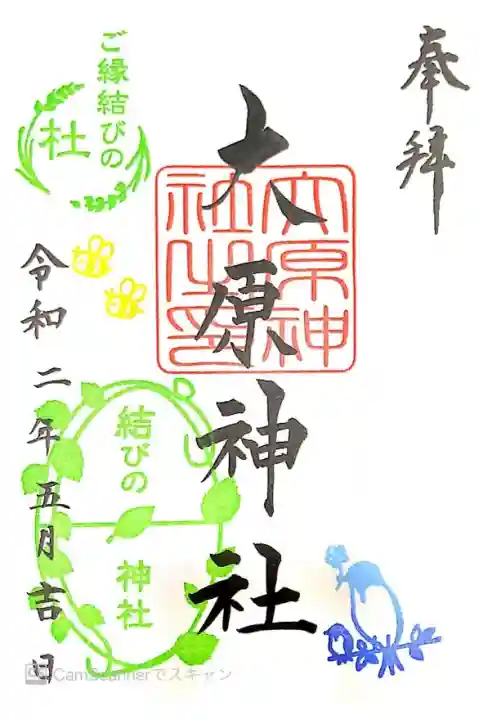 奉拝
大原神社
大原神社之印
ご縁結びの
杜
令和二年五月吉日
結びの
神社
CamScannerでスキャン